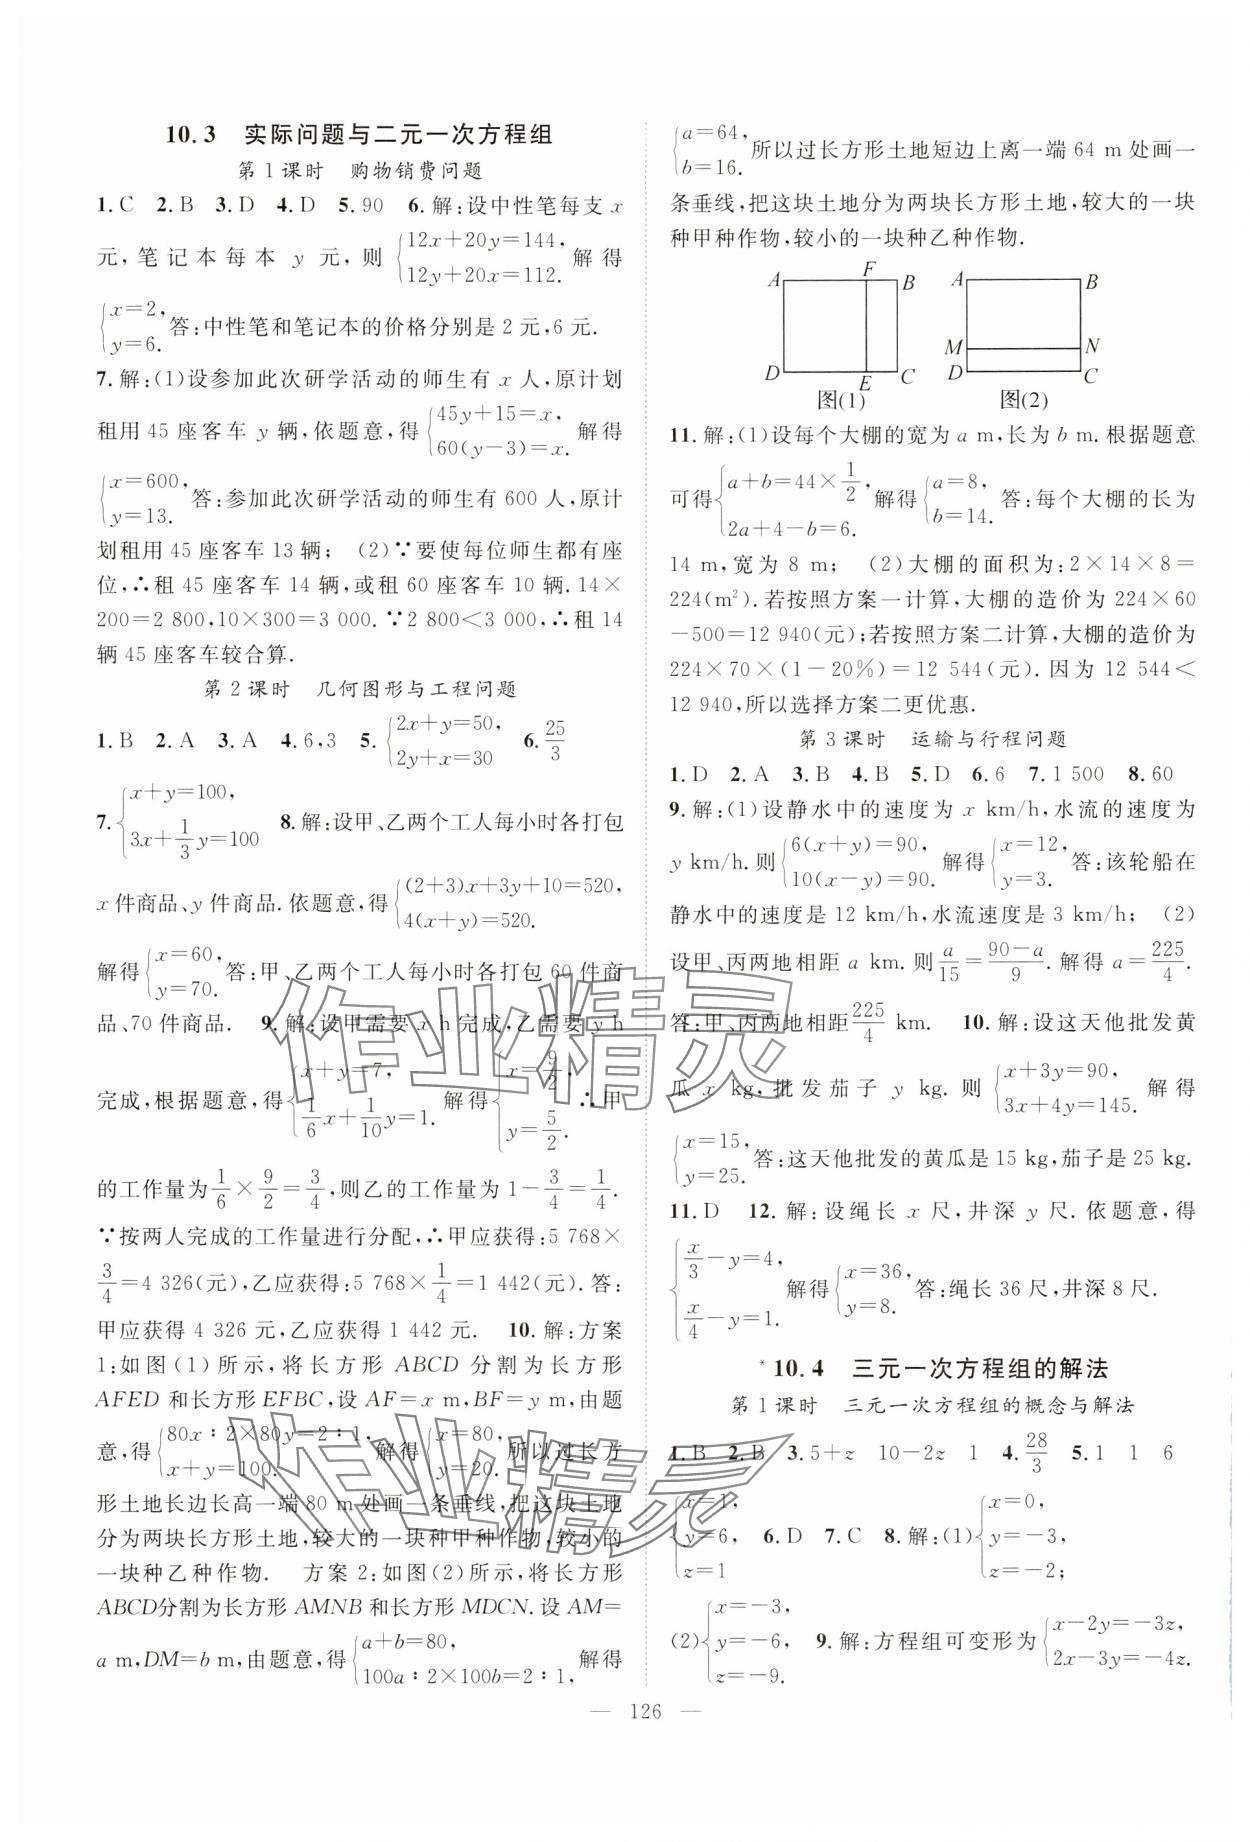 10.3 实际问题与二元一次方程组
第1课时 购物销费问题
1.C 2.B 3.D 4.D 5.90 6.解:设中性笔每支 x
元,笔记本每本 y 元,则 {12x+20y=144, 12y+20x=112. 解得
{x=2, y=6. 答:中性笔和笔记本的价格分别是 2 元,6 元.
7.解:(1)设参加此次研学活动的师生有 x 人,原计划
租用 45 座客车 y 辆,依题意,得 {45y+15=x, 60(y-3)=x. 解得
{x=600, y=13. 答:参加此次研学活动的师生有 600 人,原计
划租用 45 座客车 13 辆; (2)∵要使每位师生都有座
位,∴租 45 座客车 14 辆,或租 60 座客车 10 辆.14×
200=2 800,10×300=3 000.∵2 800<3 000,∴租 14
辆 45 座客车较合算.
第2课时 几何图形与工程问题
1.B 2.A 3.A 4.6,3 5.{2x+y=50, 2y+x=30 6.25/3
7.{x+y=100, 3x+1/3y=100 8.解:设甲、乙两个工人每小时各打包
x 件商品、y 件商品.依题意,得 {(2+3)x+3y+10=520, 4(x+y)=520.
解得 {x=60, y=70. 答:甲、乙两个工人每小时各打包 60 件商
品、70 件商品. 9.解:设甲需要 x h 完成,乙需要 y h
完成,根据题意,得 {x+y=7, 1/6x+1/10y=1. 解得 {x=9/2, y=5/2. ∴甲
的工作量为 1/6×9/2=3/4,则乙的工作量为 1-3/4=1/4.
∵按两人完成的工作量进行分配,∴甲应获得:5 768×
3/4=4 326(元),乙应获得:5 768×1/4=1 442(元).答:
甲应获得 4 326 元,乙应获得 1 442 元. 10.解:方案
1:如图(1)所示,将长方形 ABCD 分割为长方形
AFED 和长方形 EFBC,设 AF=x m,BF=y m,由题
意,得 {80x∶2×80y=2∶1, x+y=100. 解得 {x=80, y=20. 所以过长方
形土地长边长高一端 80 m 处画一条垂线,把这块土地
分为两块长方形土地,较大的一块种甲种作物,较小的
一块种乙种作物. 方案 2:如图(2)所示,将长方形
ABCD分割为长方形 AMNB 和长方形 MDCN.设 AM=
a m,DM=b m,由题意,得 {a+b=80, 100a∶2×100b=2∶1, 解得
{a=64, b=16. 所以过长方形土地短边上离一端 64 m 处画一
条垂线,把这块土地分为两块长方形土地,较大的一块
种甲种作物,较小的一块种乙种作物.
A F B
D E C
图(1)
A B
M N
D C
图(2)
11.解:(1)设每个大棚的宽为 a m,长为 b m.根据题意
可得 {a+b=44×1/2, 2a+4-b=6. 解得 {a=8, b=14. 答:每个大棚的长为
14 m,宽为 8 m; (2)大棚的面积为:2×14×8=
224(m²).若按照方案一计算,大棚的造价为 224×60
-500=12 940(元);若按照方案二计算,大棚的造价为
224×70×(1-20%)=12 544(元).因为 12 544<
12 940,所以选择方案二更优惠.
第3课时 运输与行程问题
1.D 2.A 3.B 4.B 5.D 6.6 7.1 500 8.60
9.解:(1)设静水中的速度为 x km/h,水流的速度为
y km/h.则 {6(x+y)=90, 10(x-y)=90. 解得 {x=12, y=3. 答:该轮船在
静水中的速度是 12 km/h,水流速度是 3 km/h; (2)
设甲、丙两地相距 a km.则 a/15=90-a/9.解得 a=225/4.
答:甲、丙两地相距 225/4 km. 10.解:设这天他批发黄
瓜 x kg,批发茄子 y kg.则 {x+3y=90, 3x+4y=145. 解得
{x=15, y=25. 答:这天他批发的黄瓜是 15 kg,茄子是 25 kg.
11.D 12.解:设绳长 x 尺,井深 y 尺.依题意,得
{x/3-y=4, x/4-y=1. 解得 {x=36, y=8. 答:绳长 36 尺,井深 8 尺.
*10.4 三元一次方程组的解法
第1课时 三元一次方程组的概念与解法
1.B 2.B 3.5+z 10-2z 1 4.28/3 5.1 1 6
{x=1, y=6, z=1 6.D 7.C 8.解:(1){x=0, y=-3, z=-2.
(2){x=-3, y=-6, z=-9. 9.解:方程组可变形为 {x-2y=-3z, 2x-3y=-4z.
— 126 —
作业精灵
作业精灵